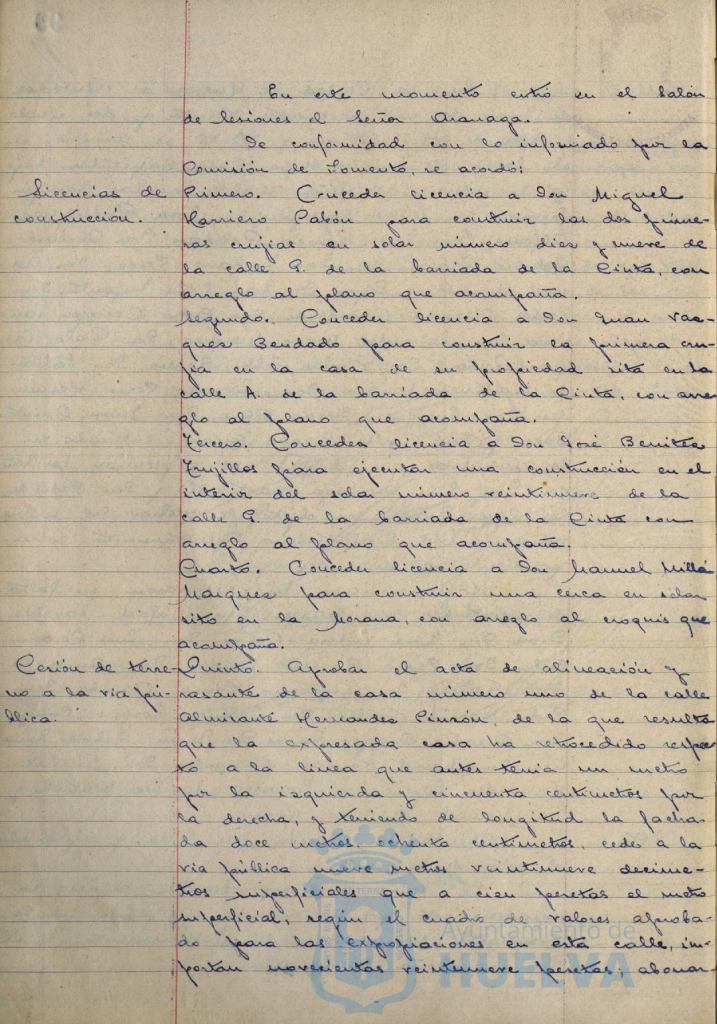 En este momento entró en el Salón
de Sesiones el Señor Aranaga.
De conformidad con lo informado por la
Comisión de Fomento, se acordó:
Licencias de
construcción.
Primero. Conceder licencia a Don Miguel
Harriero Pabón para construir las dos prime-
ras crujias en solar número diez y nueve de
la calle G. de la barriada de la Cinta, con
arreglo al plano que acompaña.
Segundo. Conceder licencia a Don Juan Vaz-
ques Bendado para construir la primera cru-
jia en la casa de su propiedad sita en la
calle A. de la barriada de la Cinta, con arre-
glo al plano que acompaña.
Tercero. Conceder licencia a Don José Benitez
Trujillos para ejecutar una construcción en el
interior del solar número veintinueve de la
calle G. de la barriada de la Cinta con
arreglo al plano que acompaña.
Cuarto. Conceder licencia a Don Manuel Millá
Marquez para construir una cerca en solar
sito en la Morana, con arreglo al croquis que
acompaña.
Cesión de terre-
no a la via pú-
blica.
Quinto. Aprobar el acta de alineación y
rasante de la casa número uno de la calle
Almirante Hernandez Pinzón, de la que resulta
que la expresada casa ha retrocedido respec-
to a la linea que antes tenia un metro
por la izquierda y cincuenta centimetros por
la derecha, y teniendo de longitud la facha-
da doce metros, ochenta centimetros, cede a la
via pública nueve metros veintinueve decime-
tros superficiales que a cien pesetas el metro
superficial, según el cuadro de valores aproba-
do para las expropiaciones en esta calle, im-
portan novecientas veintinueve pesetas; abonar-
Ayuntamiento de
HUELVA